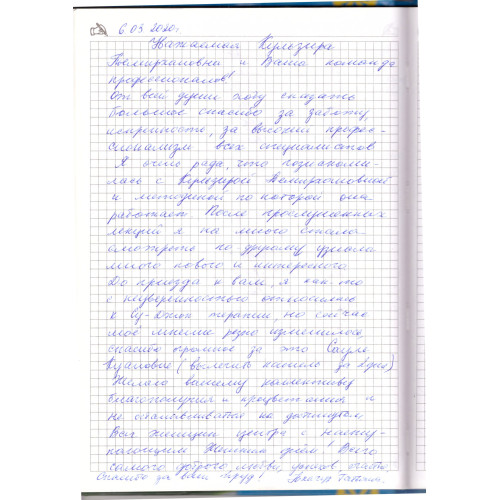 6.03.2020г.
Уважаемая Кульзира
и Ваша команда
профессионалов!
От всей души хочу сказать
большое спасибо за заботу,
искренность, за высокий профес-
сионализм всех специалистов
Я очень рада, что познакоми-
лась с Кульзирой
и методикой по которой они
работают. После прослушанных
лекций я на много стала
смотреть по другому узнала
много нового и интересного.
До приезда к вам, я как-то
с неуверенностью относилась
к Су-Джок терапии, но сейчас
моё мнение резко изменилось,
спасибо огромное за это Сауле
за 2 дня)
Желаю вашему коллективу
благополучия и процветания и
не останавливаться на достигнутом.
Всех женщин центра с насту-
пающим Женским днём! Всего
самого доброго, любви, счастья.
Спасибо за Ваш труд!